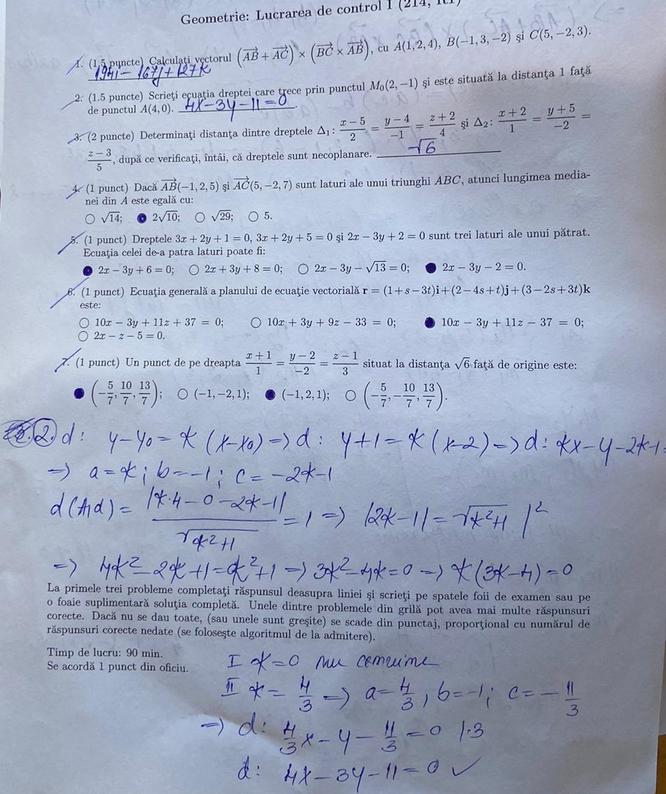 Geometrie: Lucrarea de control I (214,
1. (1.5 puncte) Calculați vectorul (AB + AC) × (BC × AB), cu A(1, 2, 4), B(−1, 3, −2) și C(5, −2, 3).
194i − 167j + 127k
2. (1.5 puncte) Scrieți ecuația dreptei care trece prin punctul M₀(2, −1) și este situată la distanța 1 față
de punctul A(4, 0). 4x−3y−11=0
3. (2 puncte) Determinați distanța dintre dreptele Δ₁: (x−5)/2 = (y−4)/−1 = (z+2)/4 și Δ₂: (x+2)/1 = (y+5)/−2 =
(z−3)/5, după ce verificați, întâi, că dreptele sunt necoplanare. √6
4. (1 punct) Dacă AB(−1, 2, 5) și AC(5, −2, 7) sunt laturi ale unui triunghi ABC, atunci lungimea media-
nei din A este egală cu:
○ √14; ● 2√10; ○ √29; ○ 5.
5. (1 punct) Dreptele 3x + 2y + 1 = 0, 3x + 2y + 5 = 0 și 2x − 3y + 2 = 0 sunt trei laturi ale unui pătrat.
Ecuația celei de-a patra laturi poate fi:
● 2x − 3y + 6 = 0; ○ 2x + 3y + 8 = 0; ○ 2x − 3y − √13 = 0; ● 2x − 3y − 2 = 0.
6. (1 punct) Ecuația generală a planului de ecuație vectorială r = (1+s−3t)i+(2−4s+t)j+(3−2s+3t)k
este:
○ 10x − 3y + 11z + 37 = 0; ○ 10x + 3y + 9z − 33 = 0; ● 10x − 3y + 11z − 37 = 0;
○ 2x − z − 5 = 0.
7. (1 punct) Un punct de pe dreapta (x+1)/1 = (y−2)/−2 = (z−1)/3 situat la distanța √6 față de origine este:
● (−5/7, 10/7, 13/7); ○ (−1, −2, 1); ● (−1, 2, 1); ○ (−5/7, −10/7, 13/7).
2. d: y−y₀ = k(x−x₀) ⇒ d: y+1 = k(x−2) ⇒ d: kx−y−2k−1=
⇒ a=k; b=−1; c=−2k−1
d(A,d) = |k·4−0−2k−1|/√(k²+1) = 1 ⇒ |2k−1| = √(k²+1) |²
⇒ 4k²−2k+1=k²+1 ⇒ 3k²−4k=0 ⇒ k(3k−4)=0
La primele trei probleme completați răspunsul deasupra liniei și scrieți pe spatele foii de examen sau pe
o foaie suplimentară soluția completă. Unele dintre problemele din grilă pot avea mai multe răspunsuri
corecte. Dacă nu se dau toate, (sau unele sunt greșite) se scade din punctaj, proporțional cu numărul de
răspunsuri corecte nedate (se folosește algoritmul de la admitere).
Timp de lucru: 90 min.
Se acordă 1 punct din oficiu.
I k=0 nu convine
II k = 4/3 ⇒ a=4/3, b=−1; c=−11/3
⇒ d: 4/3x − y − 11/3 = 0 |·3
d: 4x−3y−11=0 ✓